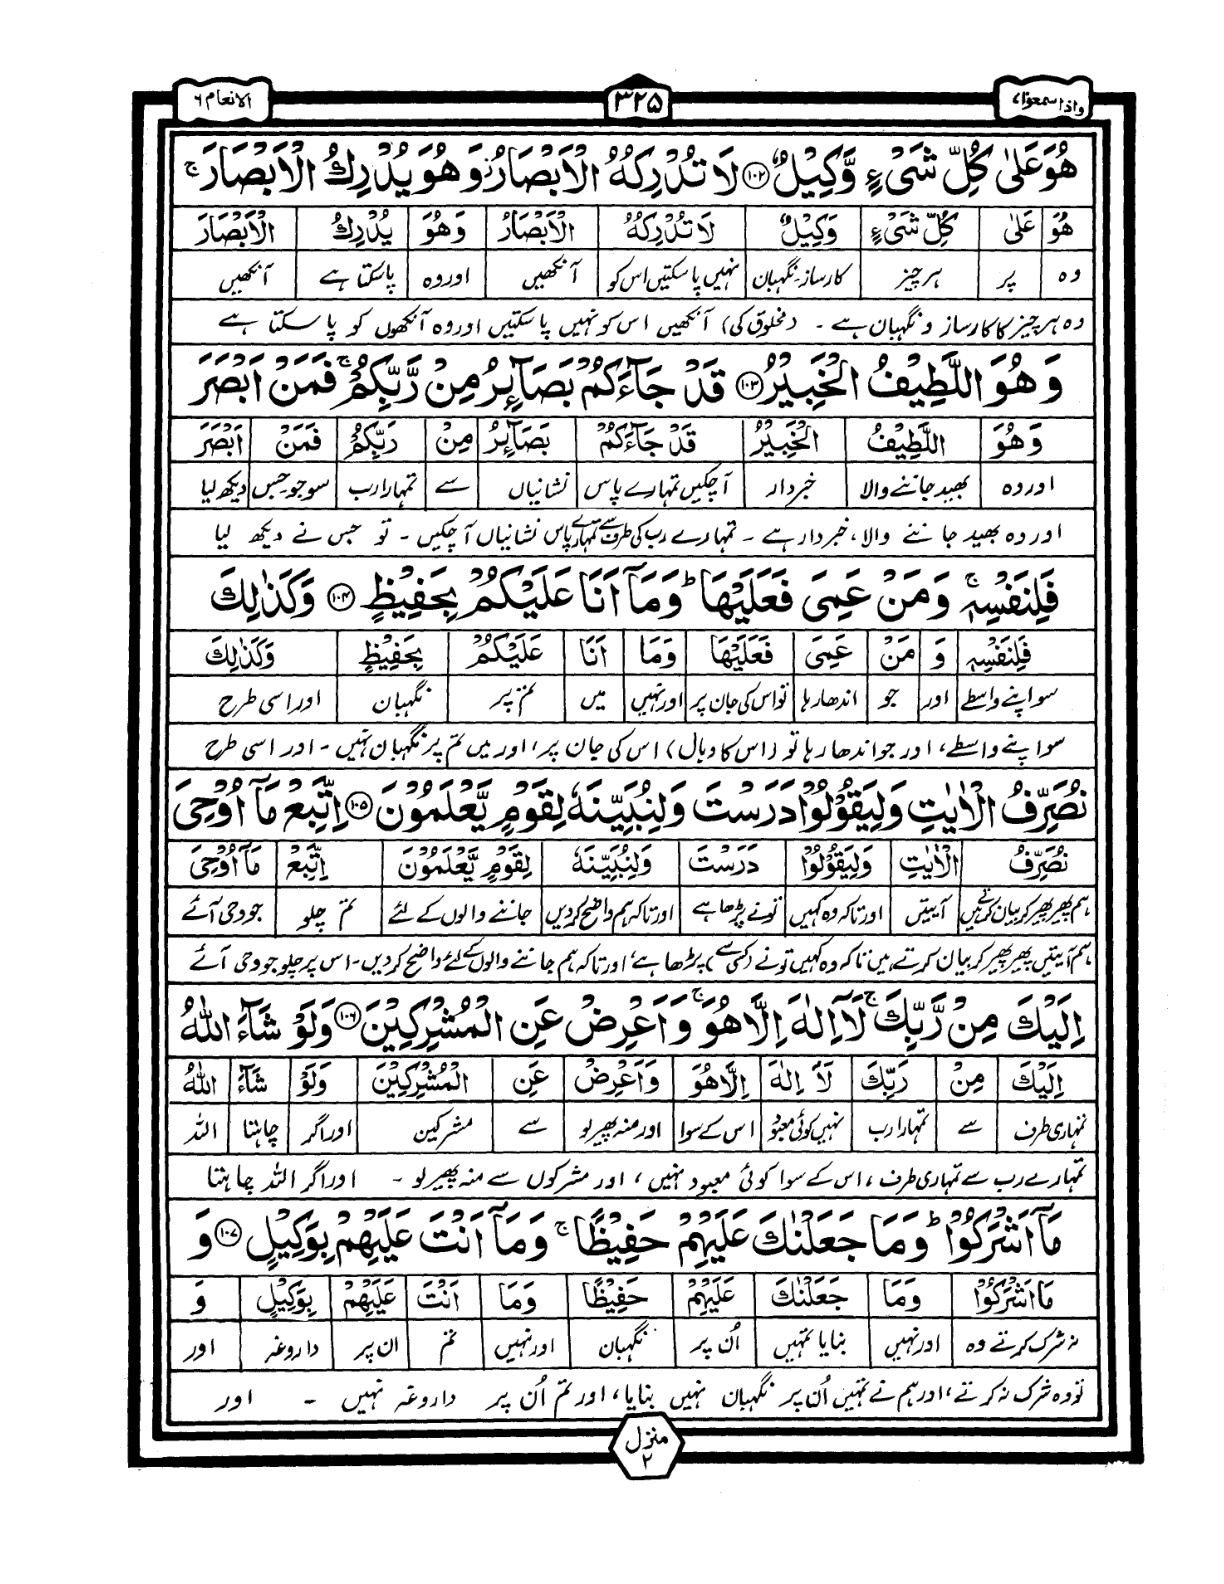 واذا سمعوا ۷
۳۲۵
الانعام ۶
هُوَ عَلٰى كُلِّ شَىْءٍ وَّكِيْلٌ ۝۱۰۲ لَا تُدْرِكُهُ الْاَبْصَارُ ز وَهُوَ يُدْرِكُ الْاَبْصَارَ ج
هُوَ عَلٰى كُلِّ شَىْءٍ وَكِيْلٌ لَا تُدْرِكُهُ الْاَبْصَارُ وَهُوَ يُدْرِكُ الْاَبْصَارَ
وہ پر ہر چیز کارساز۔نگہبان نہیں پاسکتیں اس کو آنکھیں اور وہ پاسکتا ہے آنکھیں
وہ ہر چیز کا کارساز و نگہبان ہے ۔ (مخلوق کی) آنکھیں اس کو نہیں پا سکتیں اور وہ آنکھوں کو پا سکتا ہے
وَهُوَ اللَّطِيْفُ الْخَبِيْرُ ۝۱۰۳ قَدْ جَآءَكُمْ بَصَآئِرُ مِنْ رَّبِّكُمْ ج فَمَنْ اَبْصَرَ
وَهُوَ اللَّطِيْفُ الْخَبِيْرُ قَدْ جَآءَكُمْ بَصَآئِرُ مِنْ رَبِّكُمْ فَمَنْ اَبْصَرَ
اور وہ بھید جاننے والا خبردار آچکیں تمہارے پاس نشانیاں سے تمہارا رب سو جو۔جس دیکھ لیا
اور وہ بھید جاننے والا، خبردار ہے ۔ تمہارے رب کی طرف سے تمہارے پاس نشانیاں آچکیں ۔ تو جس نے دیکھ لیا
فَلِنَفْسِهٖ ج وَمَنْ عَمِىَ فَعَلَيْهَا ط وَمَآ اَنَا عَلَيْكُمْ بِحَفِيْظٍ ۝۱۰۴ وَكَذٰلِكَ
فَلِنَفْسِهٖ وَ مَنْ عَمِىَ فَعَلَيْهَا وَمَا اَنَا عَلَيْكُمْ بِحَفِيْظٍ وَكَذٰلِكَ
سو اپنے واسطے اور جو اندھا رہا تو اس کی جان پر اور نہیں میں تم پر نگہبان اور اسی طرح
سو اپنے واسطے، اور جو اندھا رہا تو (اس کا وبال) اس کی جان پر، اور میں تم پر نگہبان نہیں ۔ اور اسی طرح
نُصَرِّفُ الْاٰيٰتِ وَلِيَقُوْلُوْا دَرَسْتَ وَلِنُبَيِّنَهٗ لِقَوْمٍ يَّعْلَمُوْنَ ۝۱۰۵ اِتَّبِعْ مَآ اُوْحِىَ
نُصَرِّفُ الْاٰيٰتِ وَلِيَقُوْلُوْا دَرَسْتَ وَلِنُبَيِّنَهٗ لِقَوْمٍ يَّعْلَمُوْنَ اِتَّبِعْ مَآ اُوْحِىَ
ہم پھیر پھیر کر بیان کرتے ہیں آیتیں اور تاکہ وہ کہیں تو نے پڑھا ہے اور تاکہ ہم واضح کردیں جاننے والوں کے لئے تم چلو جو وحی آئے
ہم آیتیں پھیر پھیر کر بیان کرتے ہیں تاکہ وہ کہیں تو نے (کسی سے) پڑھا ہے، اور تاکہ ہم جاننے والوں کے لئے واضح کردیں۔ اس پر چلو جو وحی آئے
اِلَيْكَ مِنْ رَّبِّكَ ج لَآ اِلٰهَ اِلَّا هُوَ ج وَاَعْرِضْ عَنِ الْمُشْرِكِيْنَ ۝۱۰۶ وَلَوْ شَآءَ اللّٰهُ
اِلَيْكَ مِنْ رَبِّكَ لَا اِلٰهَ اِلَّا هُوَ وَاَعْرِضْ عَنِ الْمُشْرِكِيْنَ وَلَوْ شَآءَ اللّٰهُ
تمہاری طرف سے تمہارا رب نہیں کوئی معبود اس کے سوا اور منہ پھیر لو سے مشرکین اور اگر چاہتا اللہ
تمہارے رب سے تمہاری طرف، اس کے سوا کوئی معبود نہیں، اور مشرکوں سے منہ پھیر لو ۔ اور اگر اللہ چاہتا
مَآ اَشْرَكُوْا ط وَمَا جَعَلْنٰكَ عَلَيْهِمْ حَفِيْظًا ج وَمَآ اَنْتَ عَلَيْهِمْ بِوَكِيْلٍ ۝۱۰۷ وَ
مَا اَشْرَكُوْا وَمَا جَعَلْنٰكَ عَلَيْهِمْ حَفِيْظًا وَمَا اَنْتَ عَلَيْهِمْ بِوَكِيْلٍ وَ
نہ شرک کرتے وہ اور نہیں بنایا تمہیں اُن پر نگہبان اور نہیں تم ان پر داروغہ اور
تو وہ شرک نہ کرتے، اور ہم نے تمہیں اُن پر نگہبان نہیں بنایا، اور تم اُن پر داروغہ نہیں ۔ اور
منزل
۲